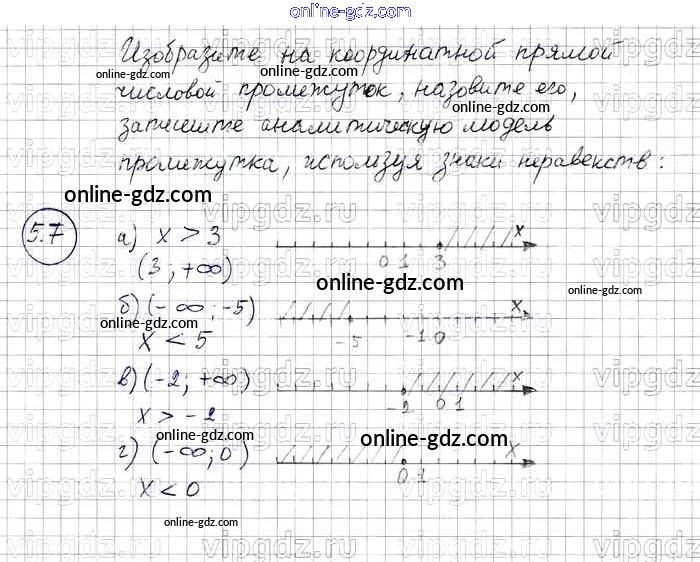 online-gdz.com
Изобразите на координатной прямой
online-gdz.com
online-gdz.com
числовой промежуток, назовите его,
online-gdz.com
запишите аналитическую модель
промежутка, используя знаки неравенств:
online-gdz.com
5.7
а) x > 3
x
0 1 3
(3; +∞)
online-gdz.com
online-gdz.com
б) (-∞; -5)
x
online-gdz.com
x < 5
-5 -1 0
в) (-2; +∞)
x
-2 0 1
x > -2
online-gdz.com
online-gdz.com
г) (-∞; 0)
x
0 1
online-gdz.com
x < 0
online-gdz.com